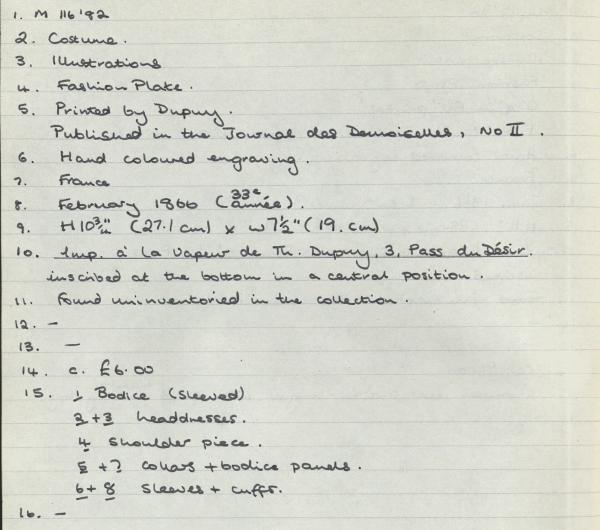 1. M 116'92
2. Costume.
3. Illustrations
4. Fashion Plate.
5. Printed by Dupuy.
Published in the Journal des Demoiselles, No II.
6. Hand coloured engraving.
7. France
8. February 1866 (33e année).
9. H 10 3/4" (27.1 cm) x w 7 1/2" (19. cm)
10. Imp. à la vapeur de Th. Dupuy, 3, Pass du Désir.
inscribed at the bottom in a central position.
11. Found uninventoried in the collection.
12. –
13. –
14. c. £6.00
15. 1 Bodice (sleeved)
2 + 3 headdresses.
4 shoulder piece.
5 + 7 collars + bodice panels.
6 + 8 sleeves + cuffs.
16. –